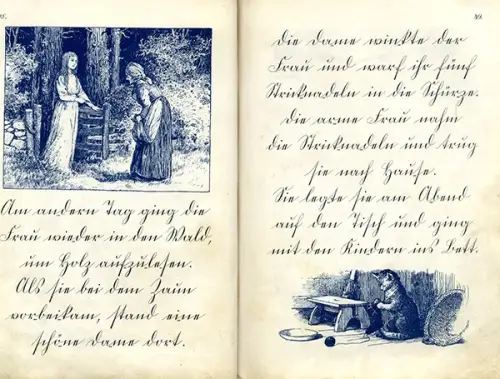 Am andern Tag ging die
Frau wieder in den Wald,
um Holz aufzulesen.
Als sie bei dem Zaun
vorbeikam, stand eine
schöne Dame dort.
39.
Die Dame winkte der
Frau und warf ihr fünf
Stricknadeln in die Schürze.
Die arme Frau nahm
die Stricknadeln und trug
sie nach Hause.
Sie legte sie am Abend
auf den Tisch und ging
mit den Kindern ins Bett.